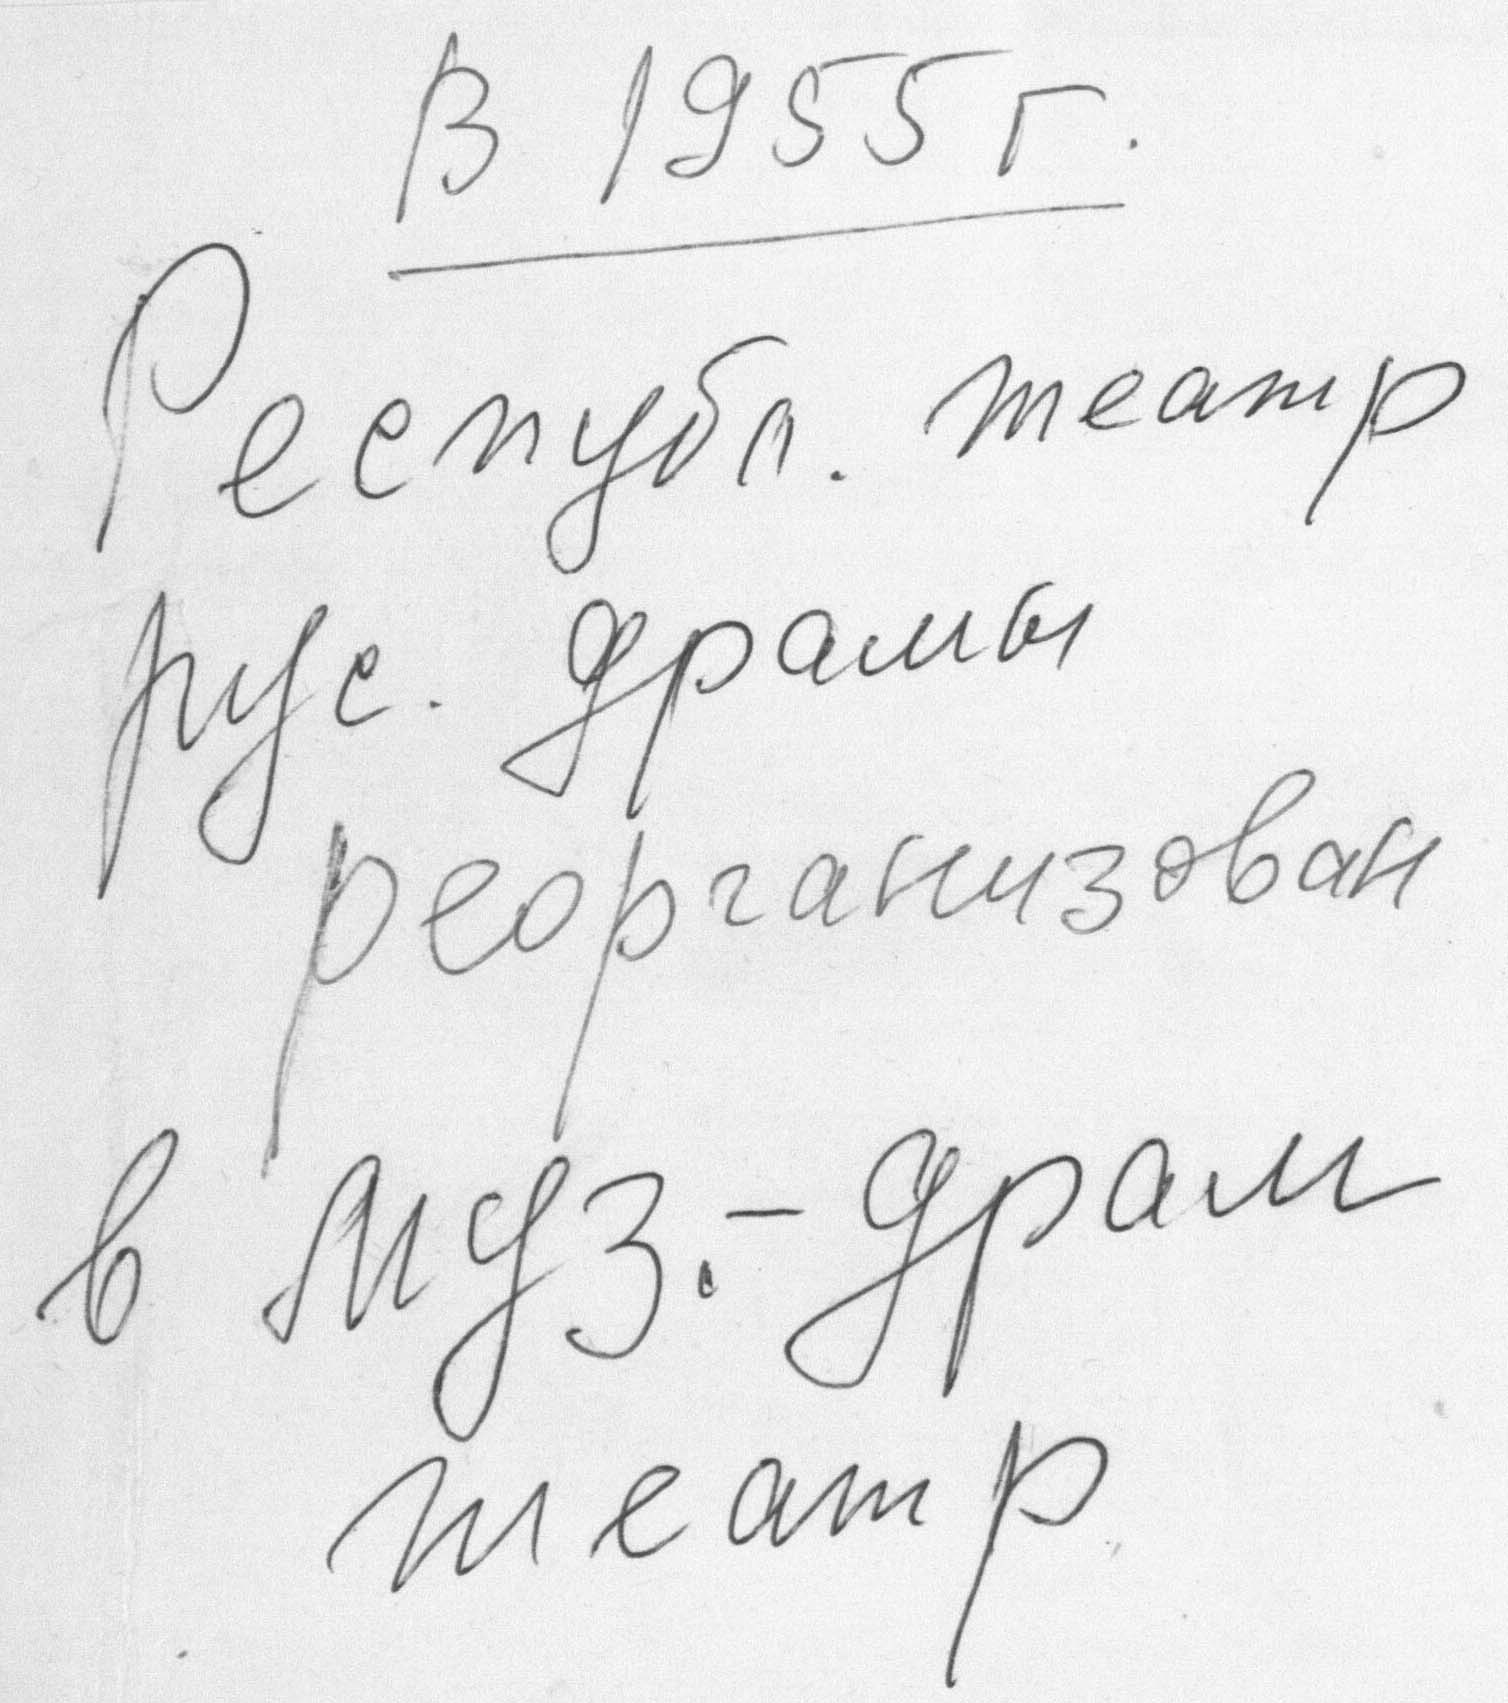 В 1955 г.
Республ. театр
рус. драмы
реорганизован
в муз.-драм
театр